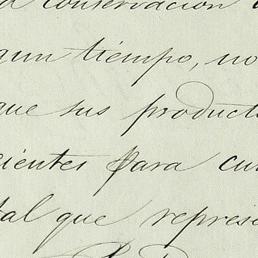 a conservacion
gun tiempo, no
que sus product
cientes para cu
tal que represe